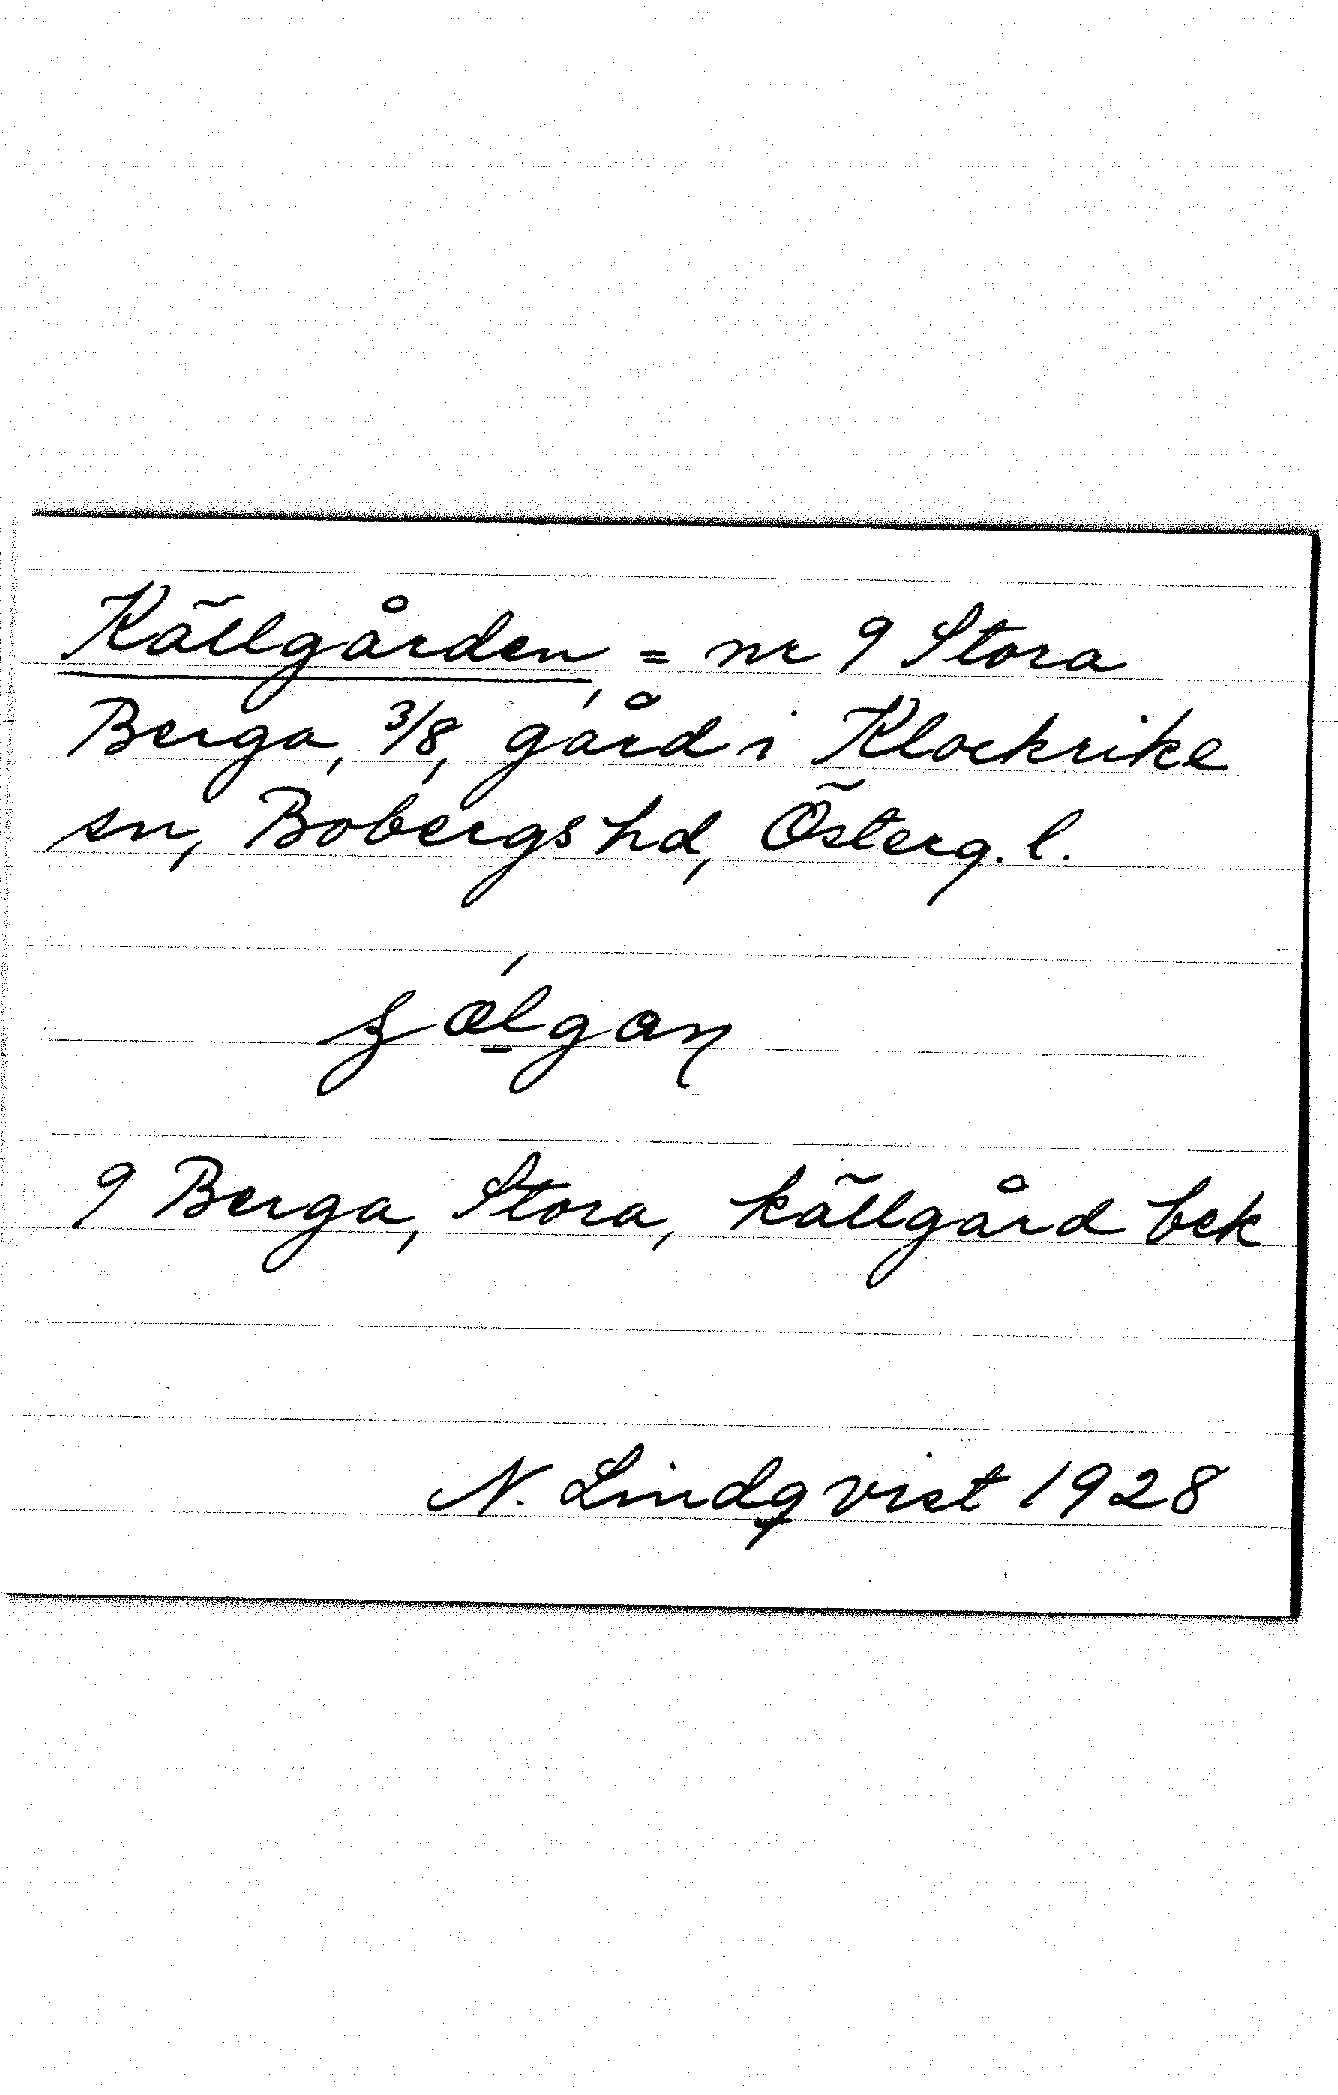 Källgården, = nr 9 Stora
Berga, 3/8, gård i Klockrike
sn, Bobergs hd, Österg. l.
9 Berga, Stora, källgård bek
N. Lindqvist 1928